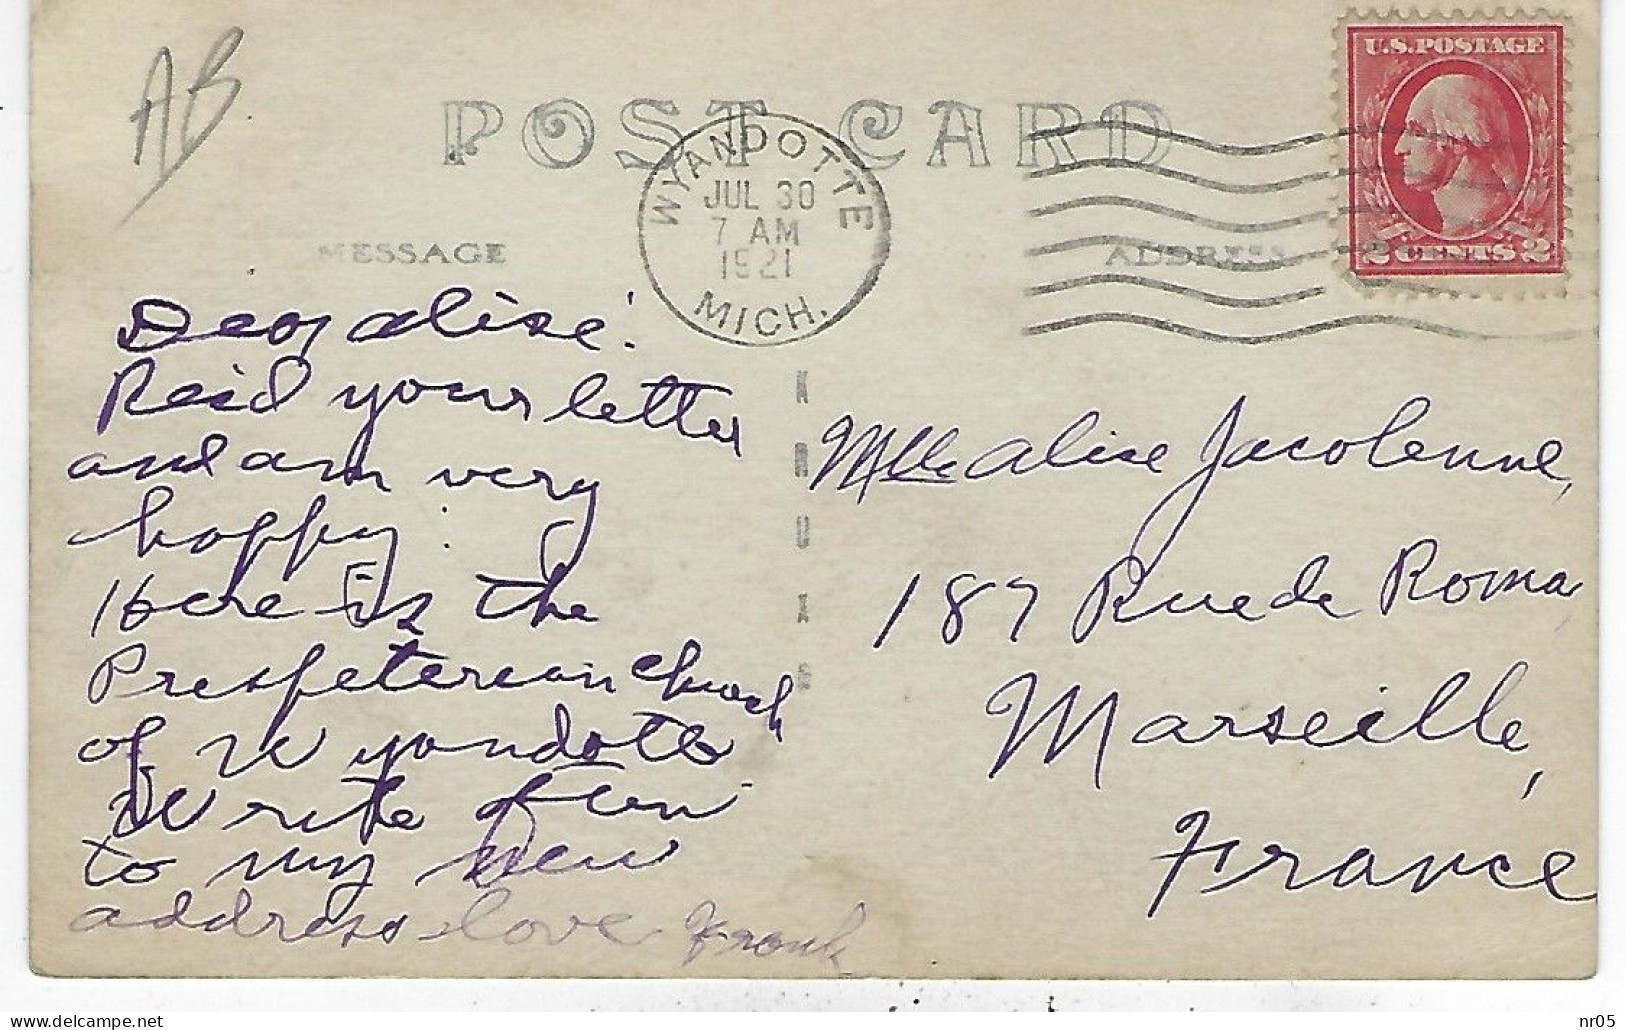 AB
POST CARD
U.S.POSTAGE
2 CENTS 2
WYANDOTTE
JUL 30
7 AM
1921
MICH.
MESSAGE
ADDRESS
KRUXO
Dear Alise!
Reid your letter
and am very
happy.
Here is the
Prespeterean Church
of Wyandotte
Write often
to my new
address love Frank
Mlle Alise Jacolenne,
187 Rue de Roma,
Marseille,
France
delcampe.net
nr05